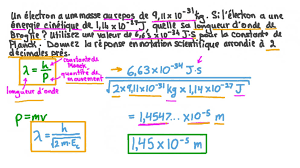 Un électron a une masse au repos de 9,11×10⁻³¹ kg. Si l'électron a une
énergie cinétique de 1,14×10⁻²⁷ J, quelle sa longueur d'onde de
Broglie ? Utilisez une valeur de 6,63×10⁻³⁴ J·s pour la constante de
Planck. Donnez la réponse en notation scientifique arrondie à 2
décimales près.
λ = h/p
constante de Planck
quantité de mouvement
longueur d'onde
= 6,63×10⁻³⁴ J·s / √(2×9,11×10⁻³¹ kg × 1,14×10⁻²⁷ J)
p = mv
= 1,4547... ×10⁻⁵ m
λ = h/√(2m·Ec)
1,45×10⁻⁵ m